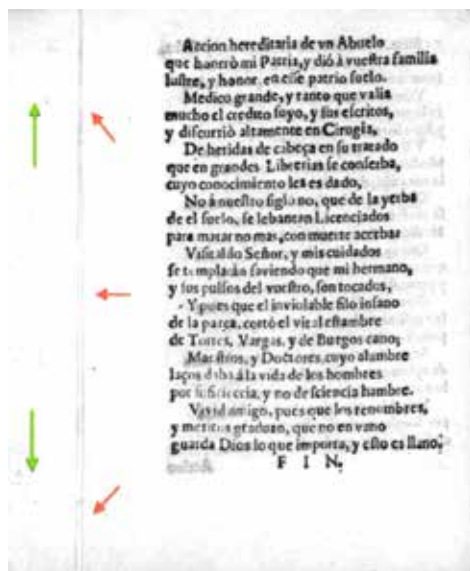 Accion hereditaria de vn Abuelo
que honrrò mi Patria, y diò à vuestra familia
lustre, y honor en esse patrio suelo.
Medico grande, y tanto que valia
mucho el credito suyo, y sus escritos,
y discurriò altamente en Cirugia,
De heridas de cabeça en su tratado
que en grandes Librerias se conserba,
cuyo conocimiento les es dado,
No à nuestro siglo no, que de la yerba
de el suelo, se lebantan Licenciados
para matar no mas, con muerte acerba:
Visitaldo Señor, y mis cuidados
se templaràn saviendo que mi hermano,
y sus pulsos del vuestro, son tocados,
Y pues que el inviolable filo insano
de la parca, cortò el vital estambre
de Torres, Vargas, y de Burgos cano;
Maestros, y Doctores cuyo alambre
laços daba à la vida de los hombres
por suficiencia, y no de sciencia hambre.
amigo, pues que los renombres,
y meritos graduao, que no en vano
guarda Dios lo que importa, y esto es llano;
F I N.